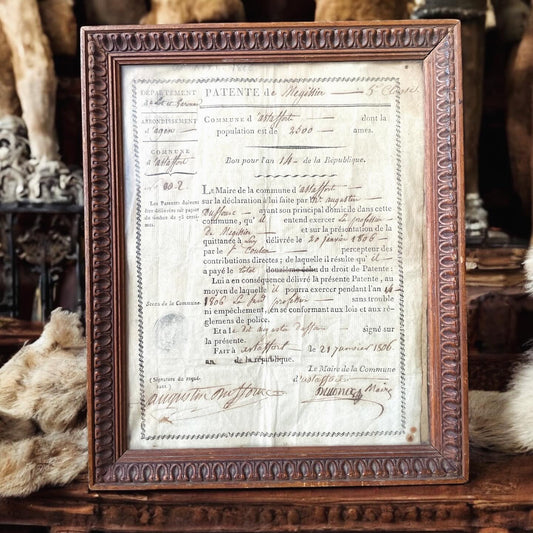 DÉPARTEMENT
de Lot et Garonne
ARRONDISSEMENT
d'agen
COMMUNE
d'astaffort
Les Patentes doivent
être délivrées sur papier
Sceau de la Commune
(Signature du requérant.)
PATENTE de Megissier 5e Classe
COMMUNE d'astaffort dont la
population est de 2500 ames.
Bon pour l'an 14 de la République.
LE Maire de la commune d'astaffort
sur la déclaration à lui faite par Sr augustin
Duffour ayant son principal domicile dans cette
commune, qu'il entend exercer la profession
de Megissier et sur la présentation de la
quittance à lui délivrée le 20 janvier 1806
par le percepteur des
contributions directes; de laquelle il résulte qu'il
a payé le total douzième échu du droit de Patente:
Lui a en conséquence délivré la présente Patente, au
moyen de laquelle il pourra exercer pendant l'an 14
1806 profession sans trouble
ni empêchement, en se conformant aux lois et aux réglemens de police.
Et a le dit augustin duffour signé sur
la présente.
FAIT à astaffort le 21 janvier 1806
an de la république.
Le Maire de la Commune
d'astaffort
augustin duffour
Maire